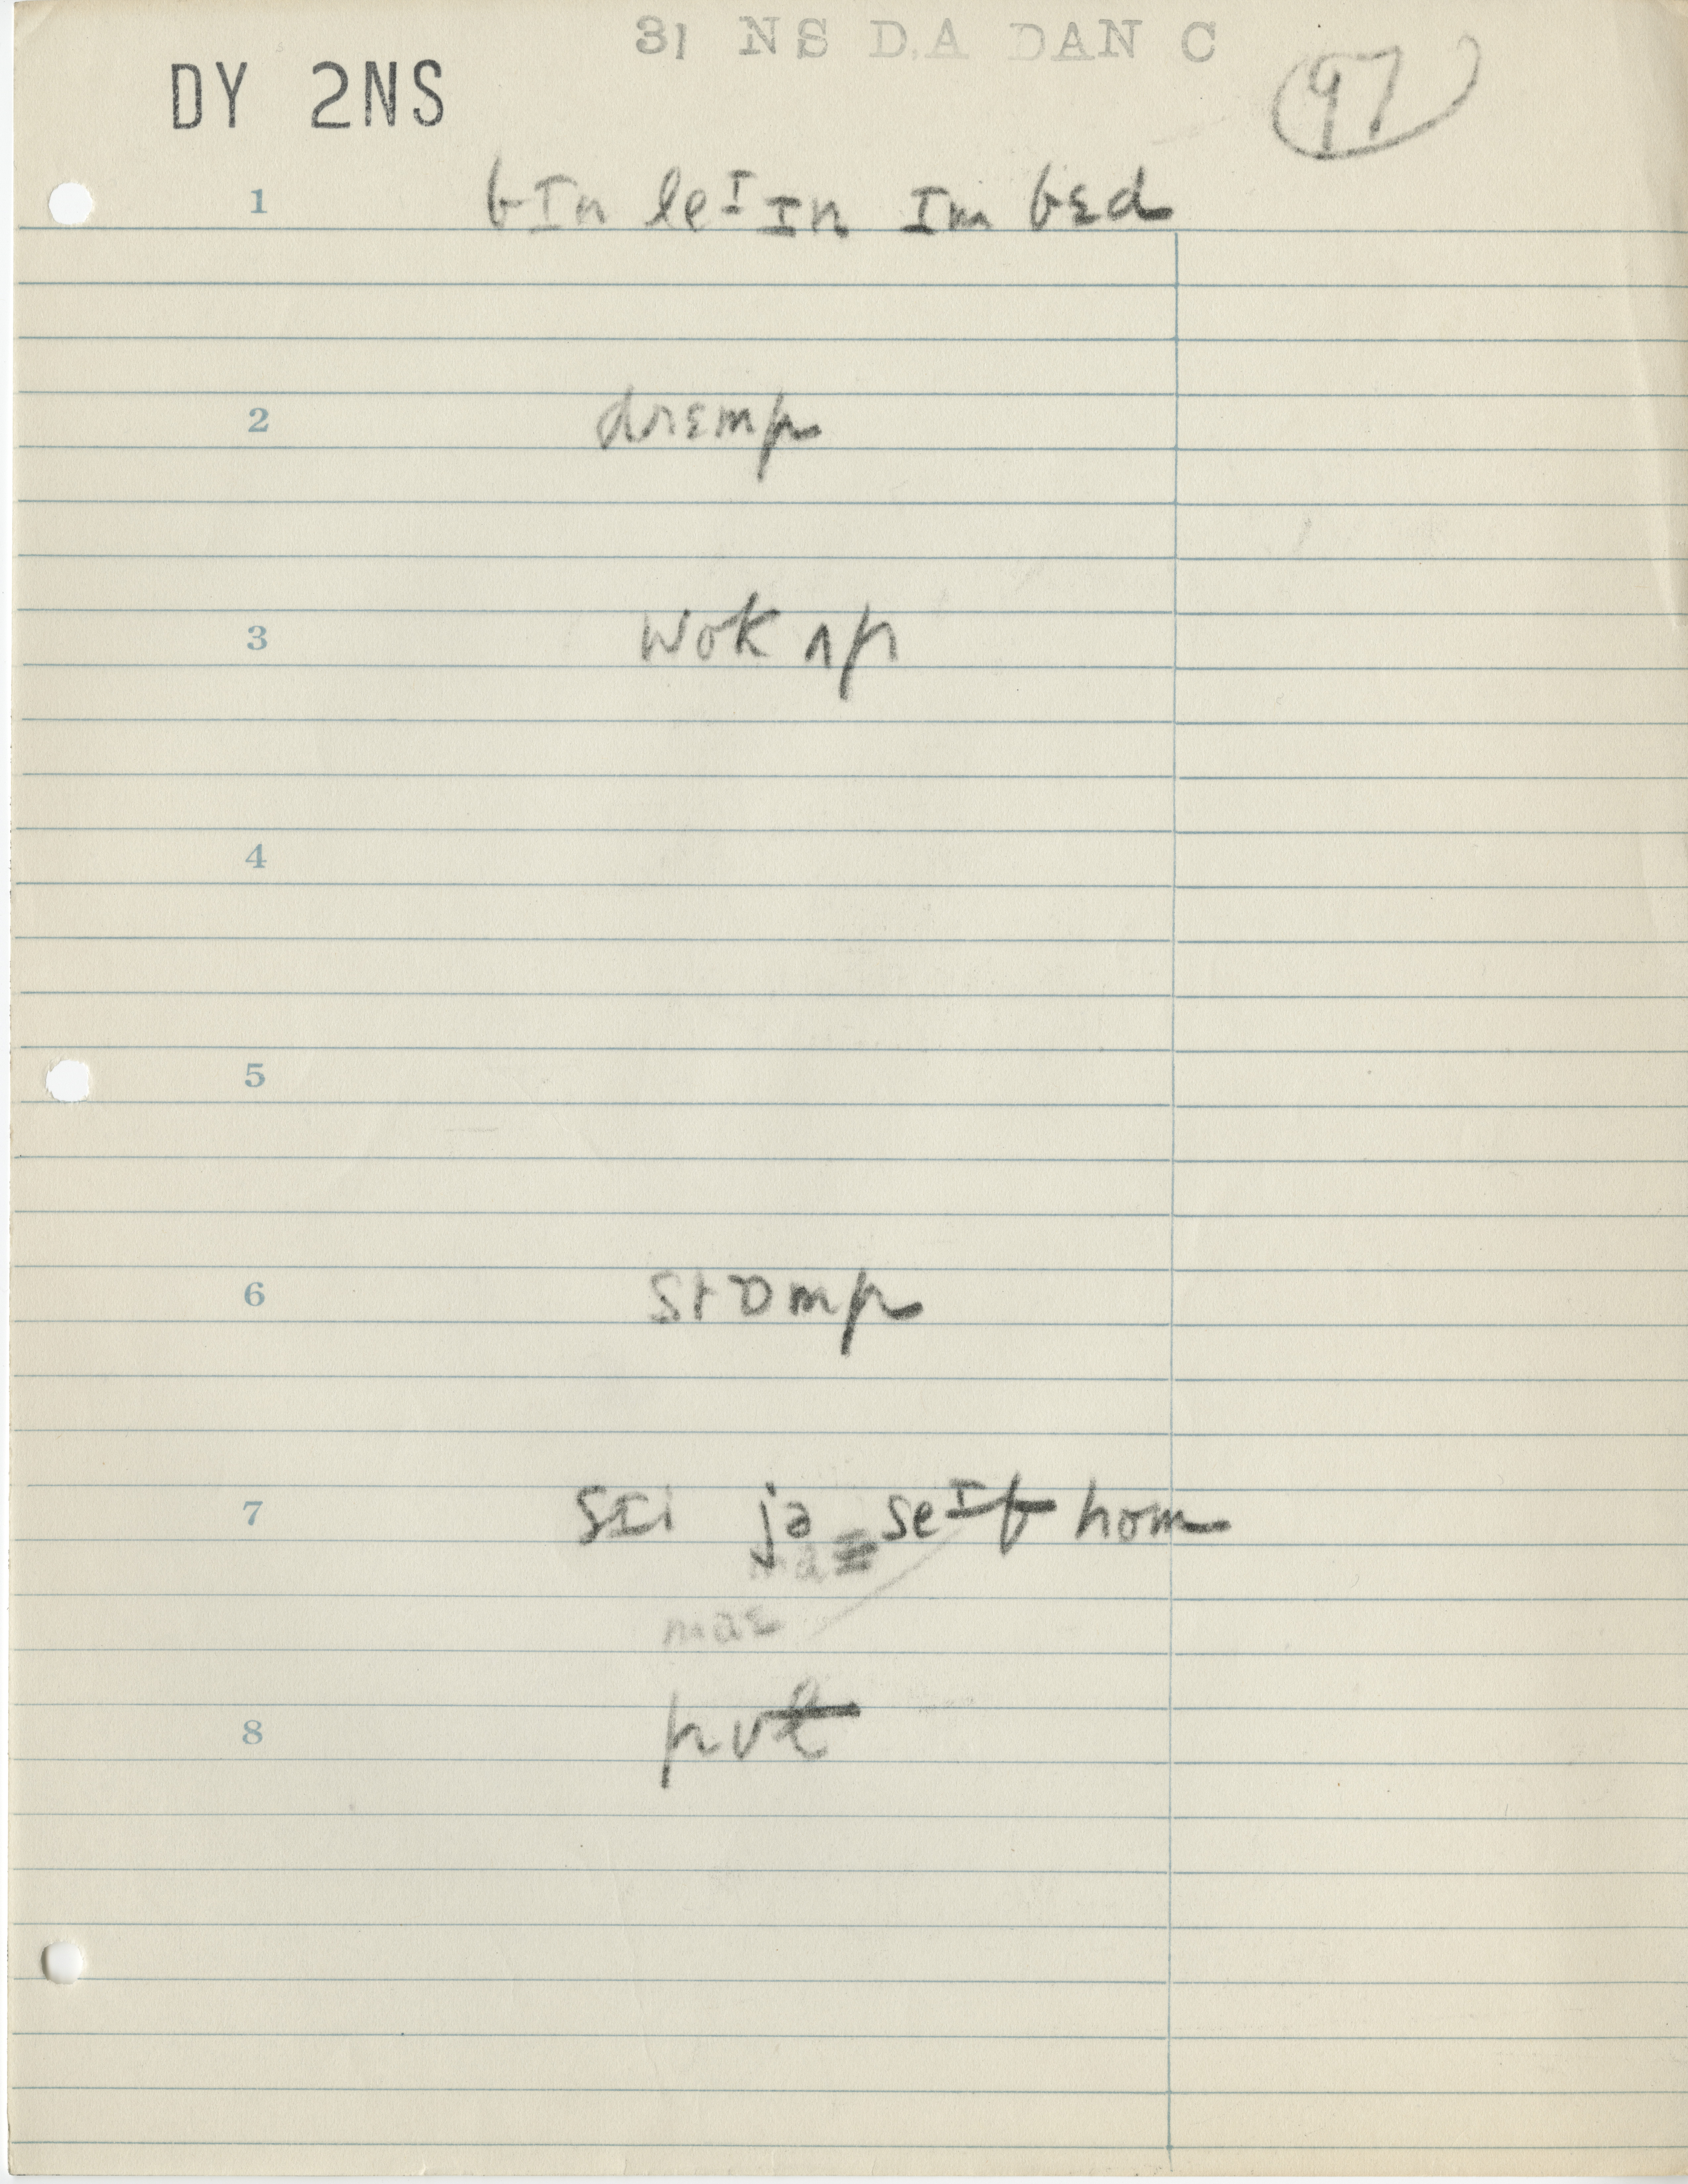 31 NS D.A DAN C
DY 2NS
97
1 bɪn leᴵɪn ɪm bɛd
2 drɛmp
3 wok ʌp
4
5
6 stɒmp
7 sɪi jə seᴵf hom
8 pʊt